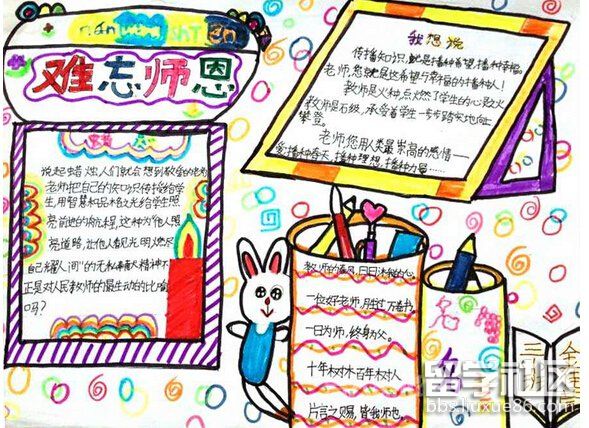 nan wang shi en
难忘师恩
我想说
传播知识,就是播种希望,播种幸福。
老师,您就是这希望与幸福的播种人!
教师是火种,点燃了学生的心灵之火
教师是石级,承受着学生一步步踏实地向上
攀登。
老师,您用人类最崇高的感情——
爱播种春天,播种理想,播种力量……
说起蜡烛人们就会想到敬爱的老师
老师把自己的知识传授给学
生,用智慧和品格之光给学生照
亮前进的
这种为他人照
亮道路,让他人看见光明,燃尽
自己照耀人间"的无私奉献精神不
正是对人民教师的最生动的比喻
吗?
教师的春风,日日沐我心。
一位好老师,胜过万卷书。
一日为师,终身为父。
十年树木百年树人
片言之赐,皆我师也。
名
名
三
班
全
留学社区
bbs.liuxue86.com